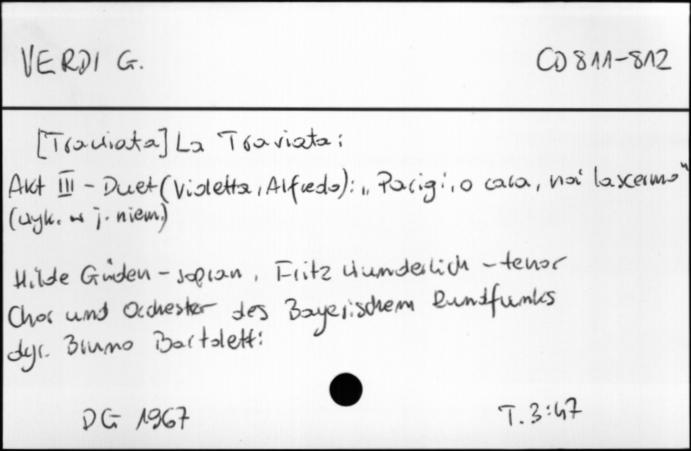 VERDI G. CD 811-812
[Traviata] La Traviata:
Akt III - Duet (Violetta, Alfredo): „Parigi, o cara, noi lascermo"
(wyk. w j. niem.)
Hilde Güden - sopran, Fritz Wunderlich - tenor
Chor und Orchester des Bayerischem Rundfunks
dyr. Bruno Bartoletti
DG 1967 T. 3:47